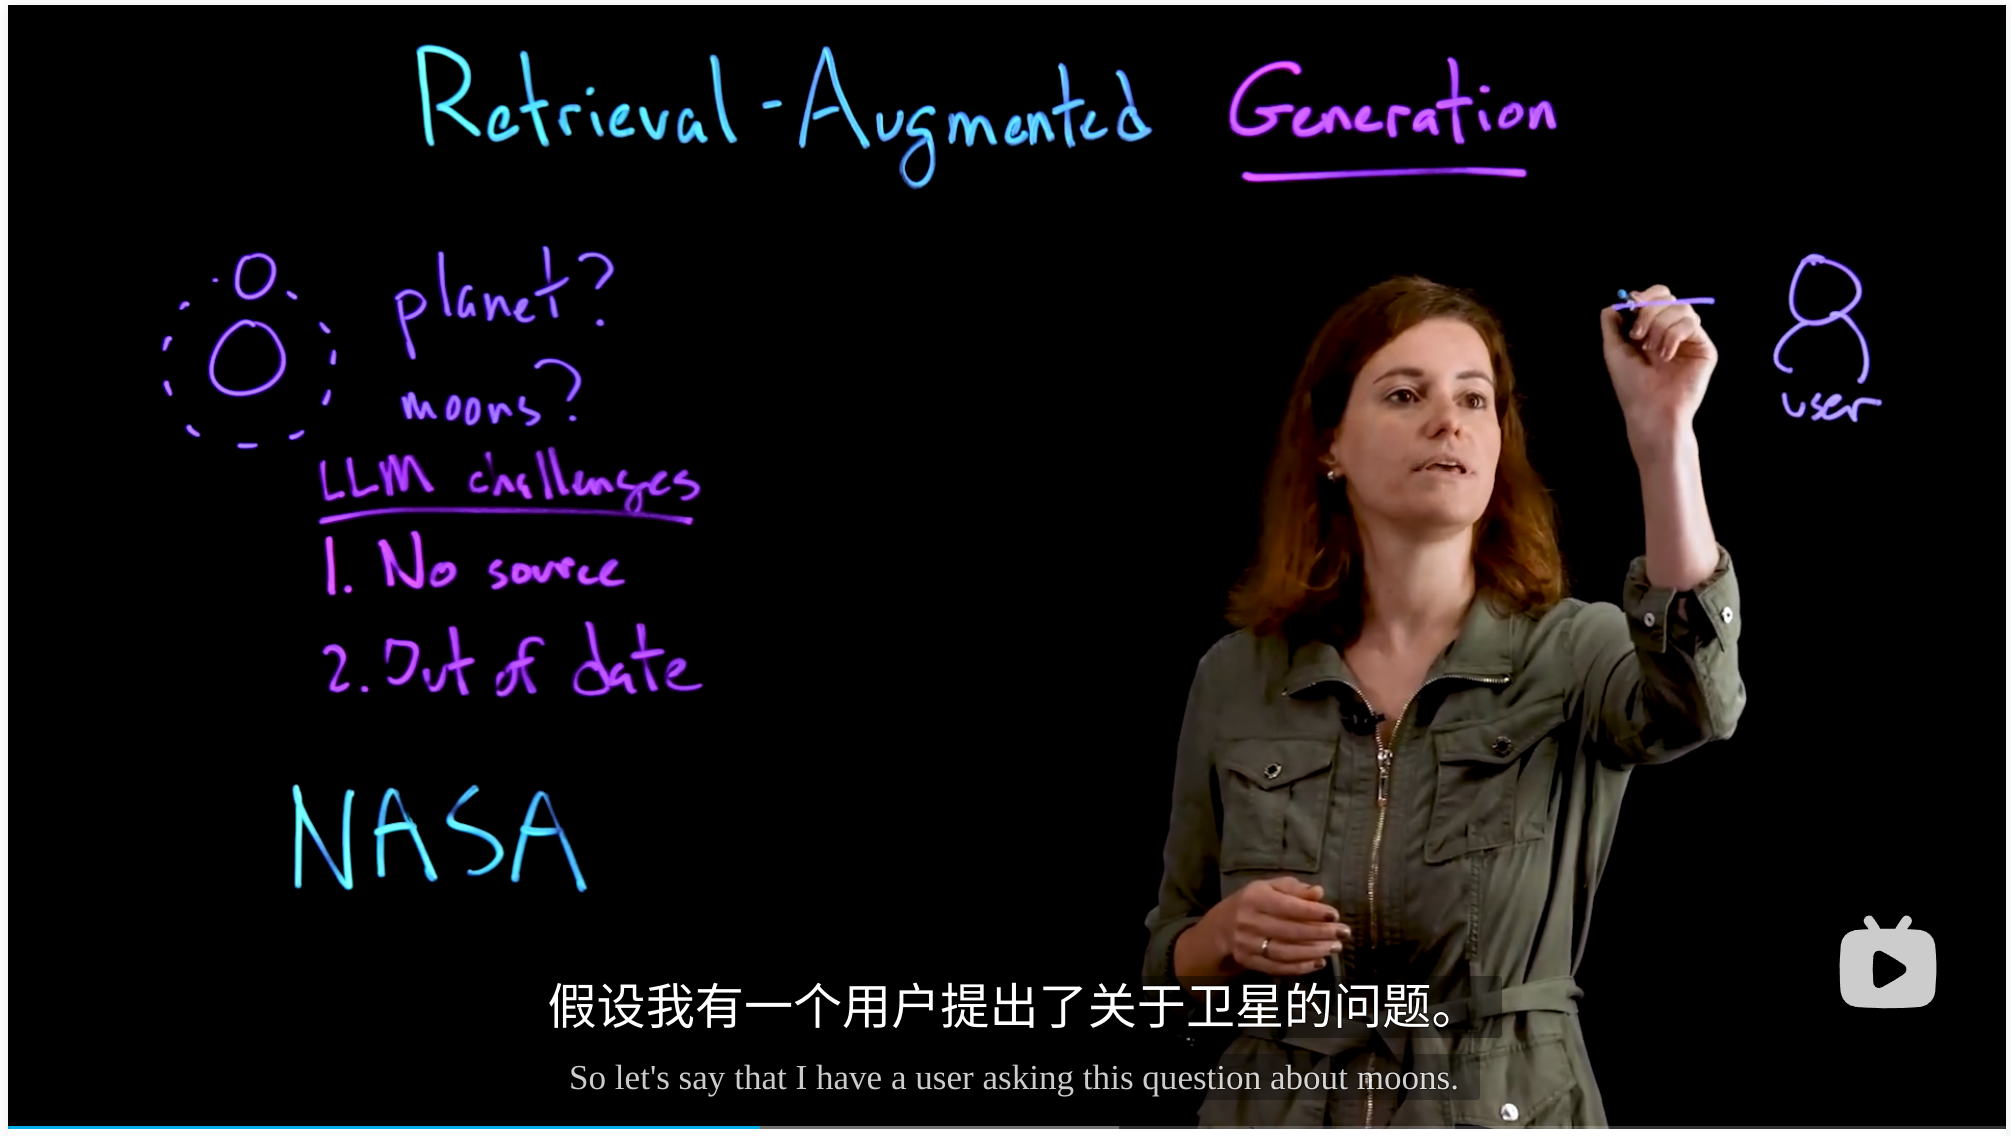 Retrieval-Augmented Generation
planet?
moons?
LLM challenges
1. No source
2. Out of date
NASA
user
假设我有一个用户提出了关于卫星的问题。
So let's say that I have a user asking this question about moons.